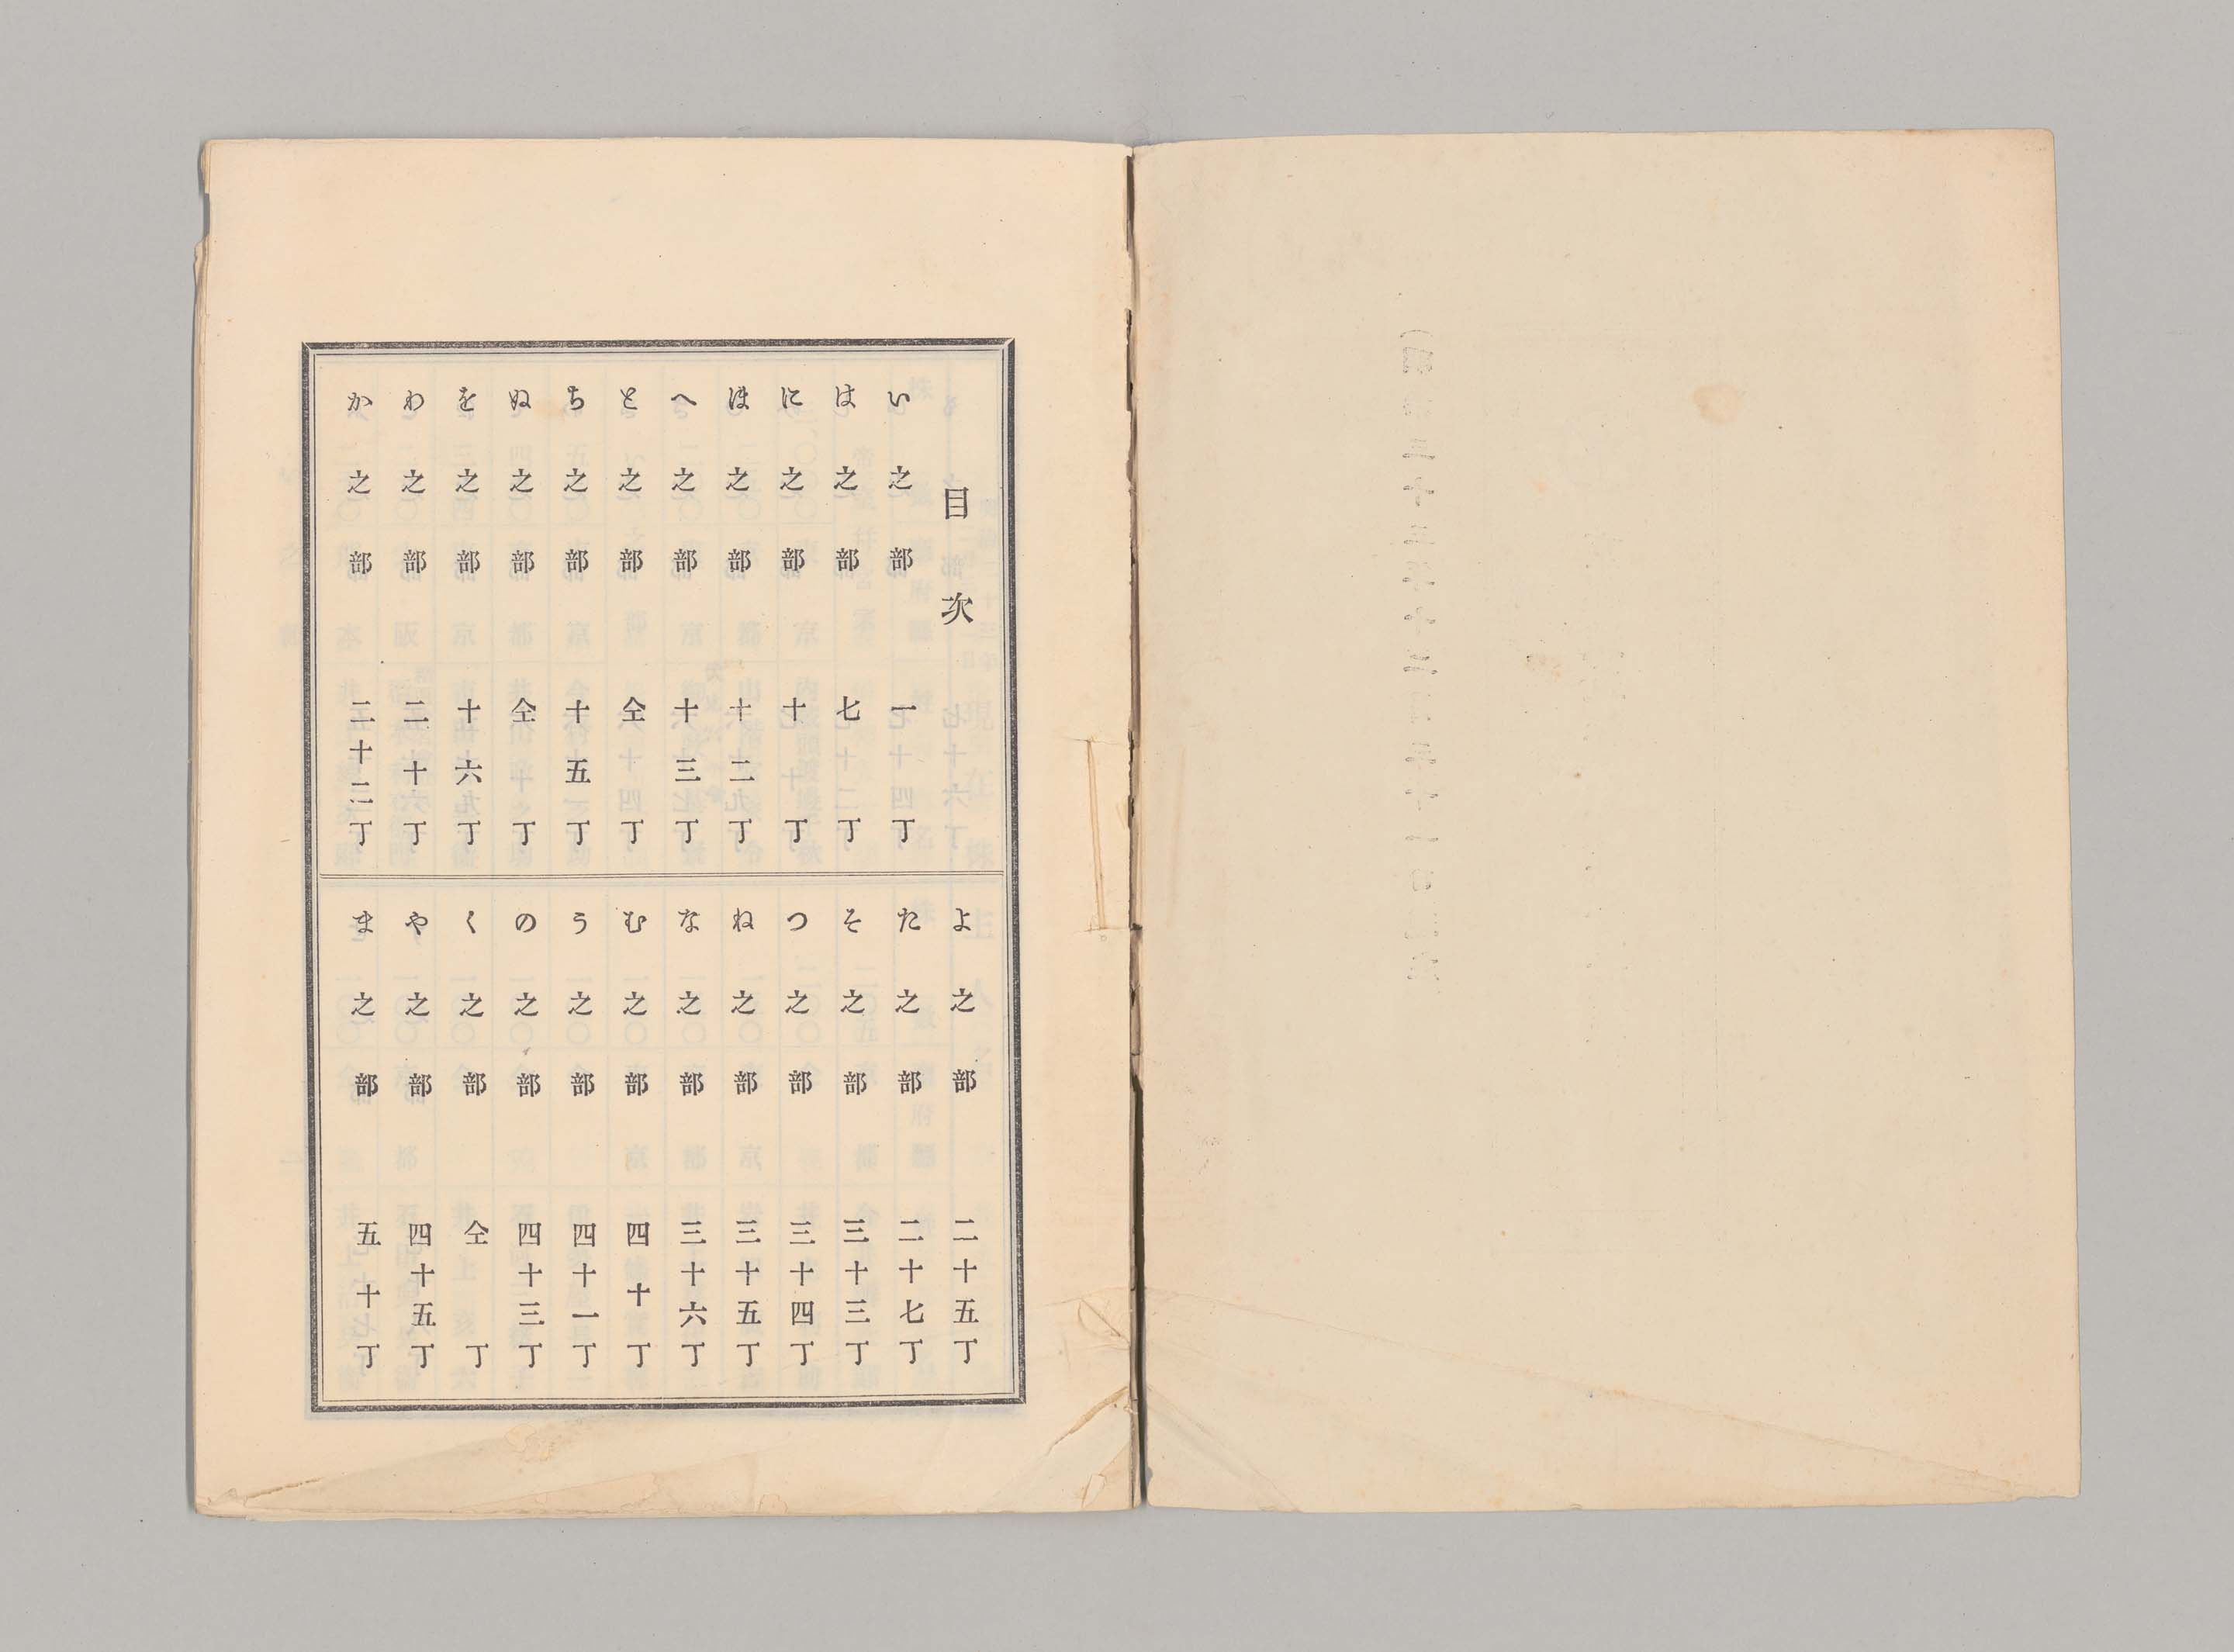 目次
い之部 一丁
は之部 七丁
に之部 十丁
ほ之部 十二丁
へ之部 十三丁
と之部 仝丁
ち之部 十五丁
ぬ之部 仝丁
を之部 十六丁
わ之部 二十丁
か之部 二十二丁
よ之部 二十五丁
た之部 二十七丁
そ之部 三十三丁
つ之部 三十四丁
ね之部 三十五丁
な之部 三十六丁
む之部 四十丁
う之部 四十一丁
の之部 四十三丁
く之部 仝丁
や之部 四十五丁
ま之部 五十丁